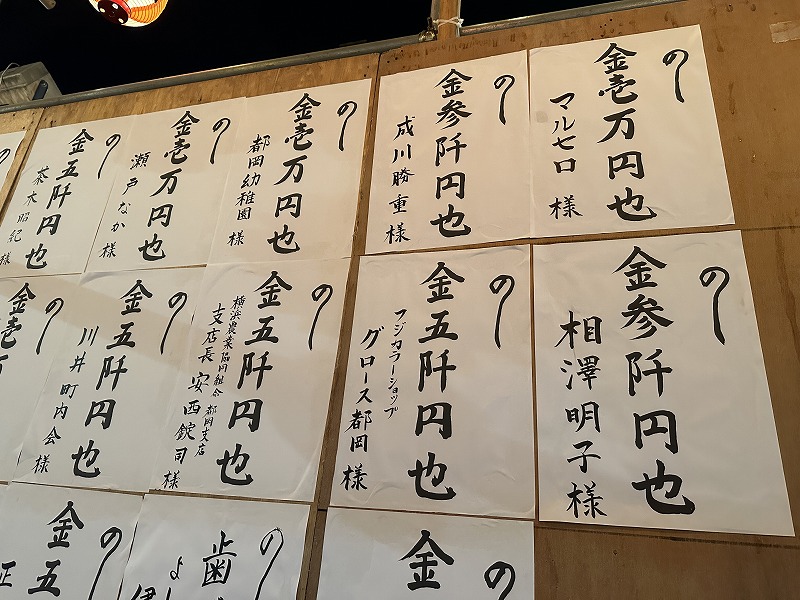 のし
金壱万円也
マルセロ 様
のし
金参阡円也
成川勝重様
のし
金壱万円也
都岡幼稚園 様
のし
金壱万円也
瀬戸なか様
のし
金五阡円也
茶木昭紀様
のし
金参阡円也
相澤明子様
のし
金五阡円也
フジカラーショップ
グロース都岡 様
のし
金五阡円也
横浜農業協同組合 都岡支店
支店長 安西錠司様
のし
金五阡円也
川井町内会様
のし
金壱
のし
金
のし
歯
よし
のし
金五